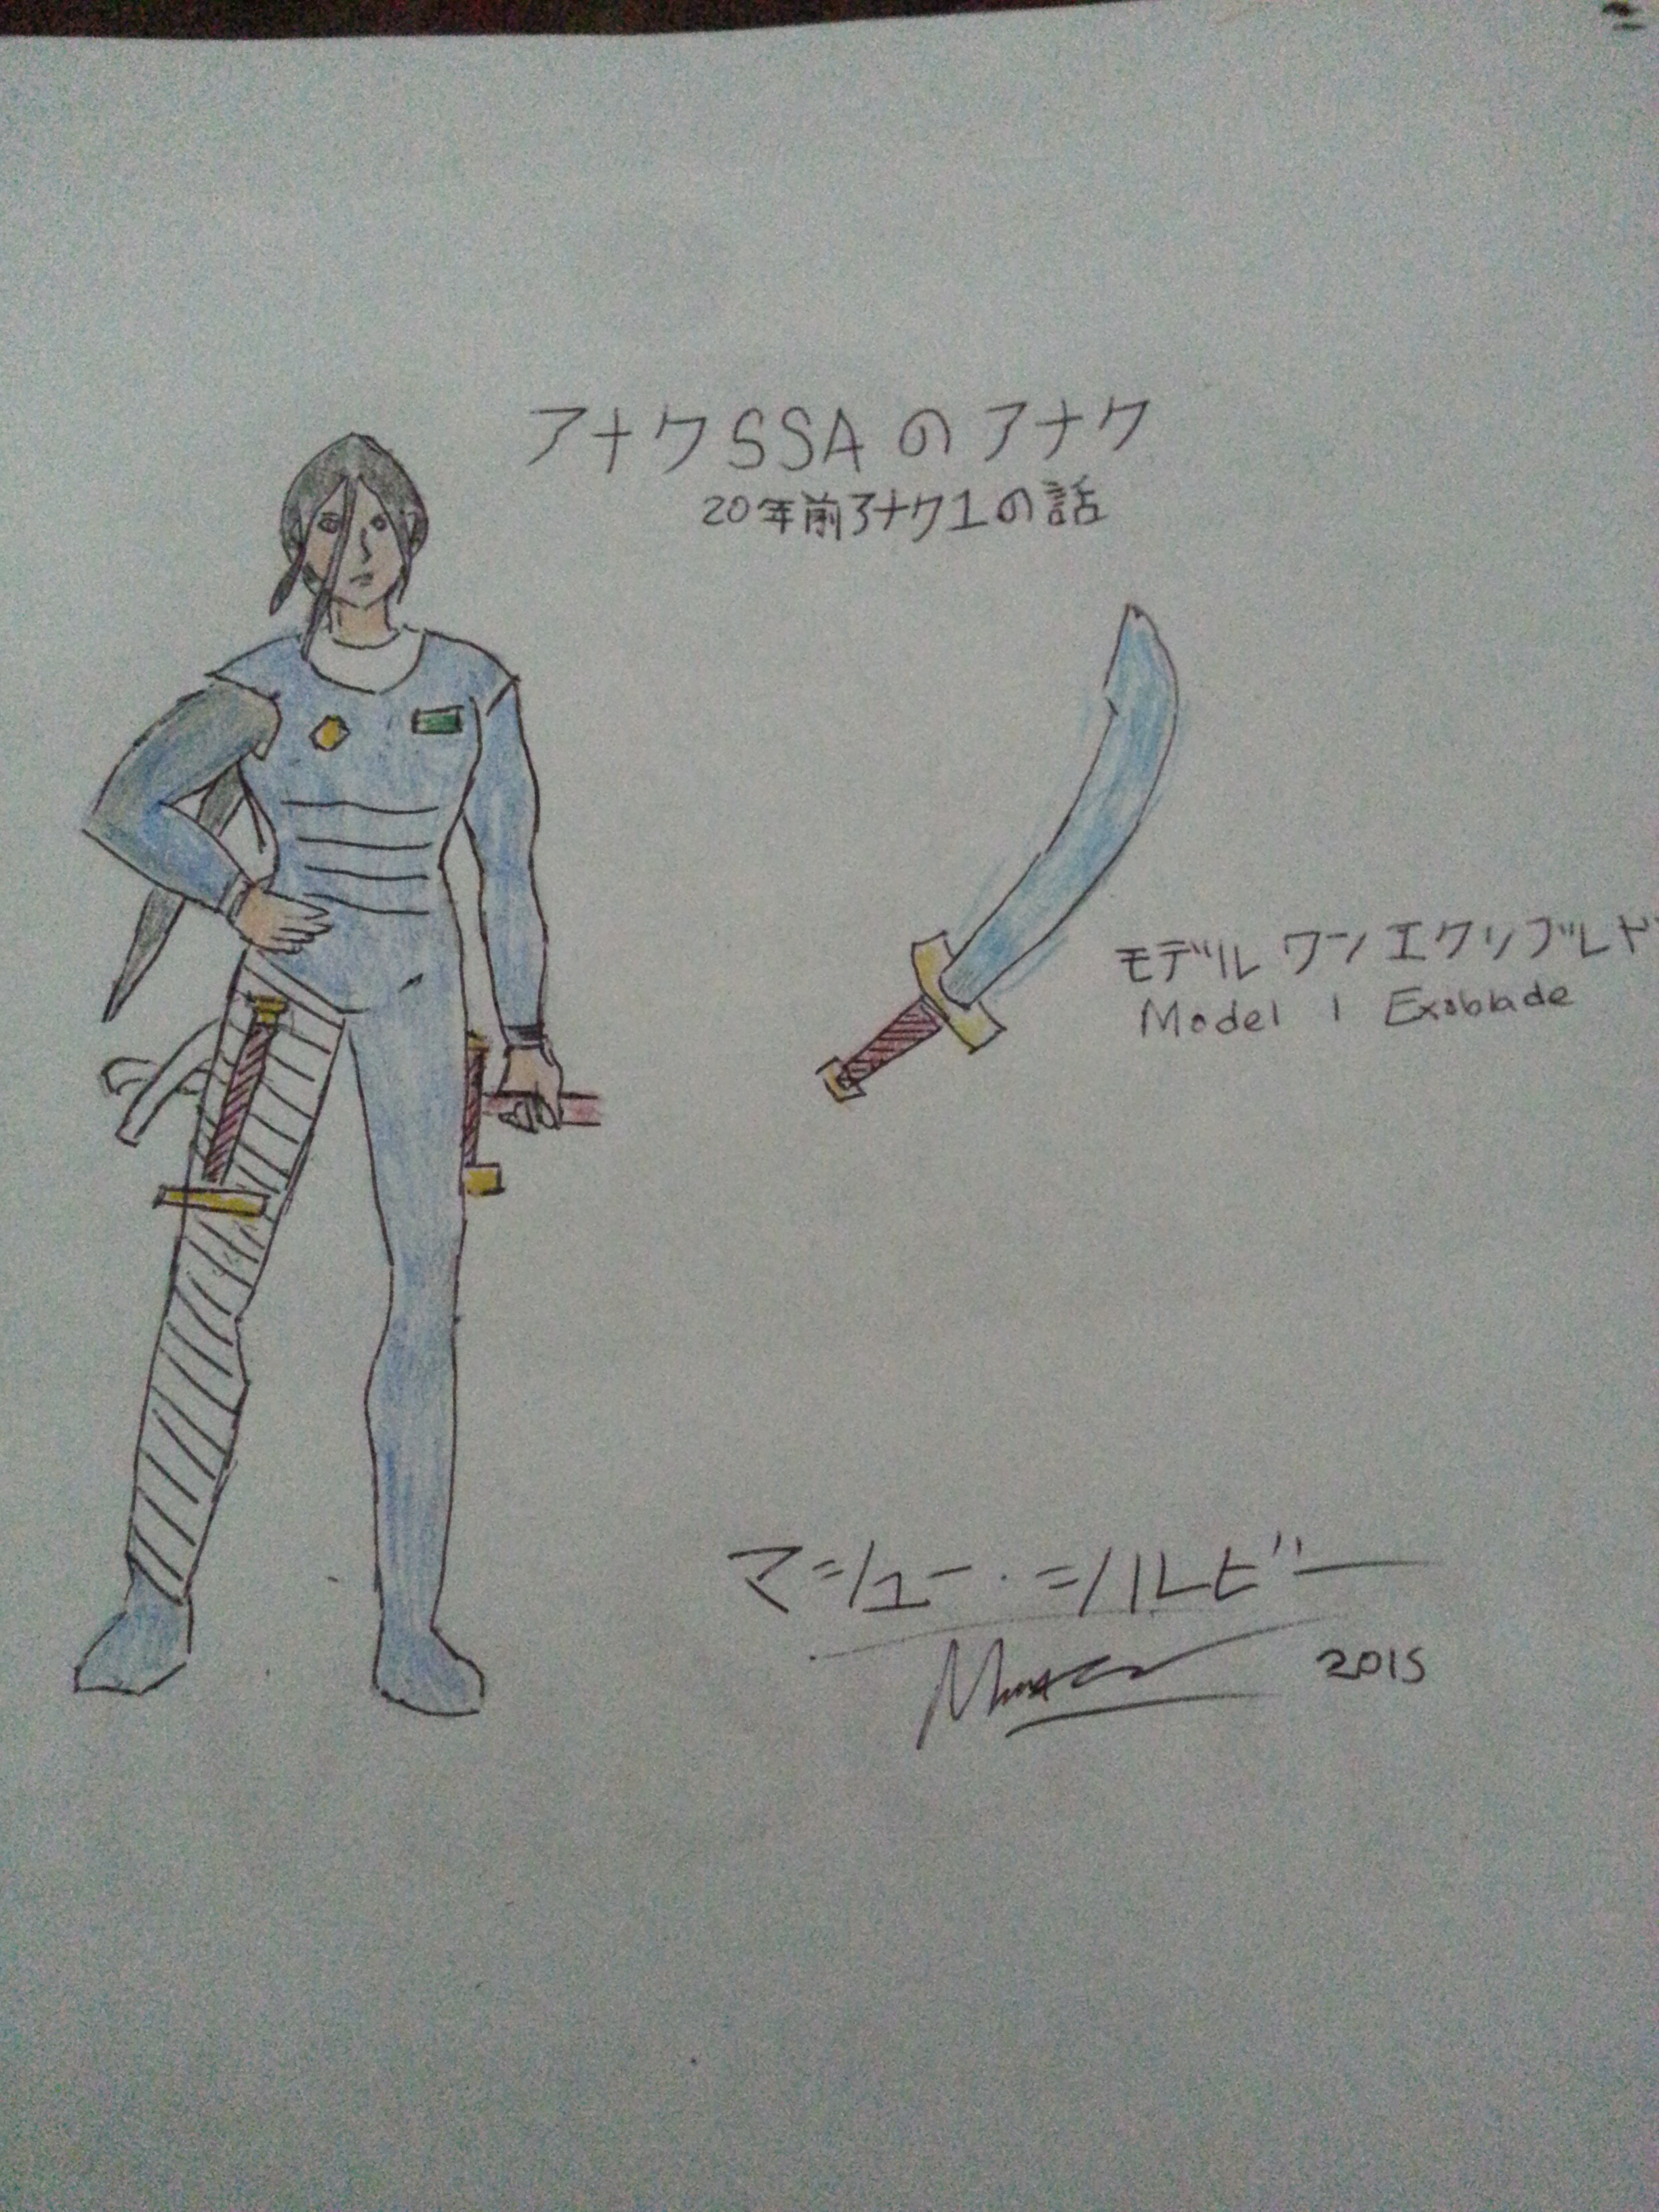 アナクSSAのアナク
20年前アナク1の話
モデル ワン エクソブレド
Model 1 Exoblade
マシュー・シルビー
2015